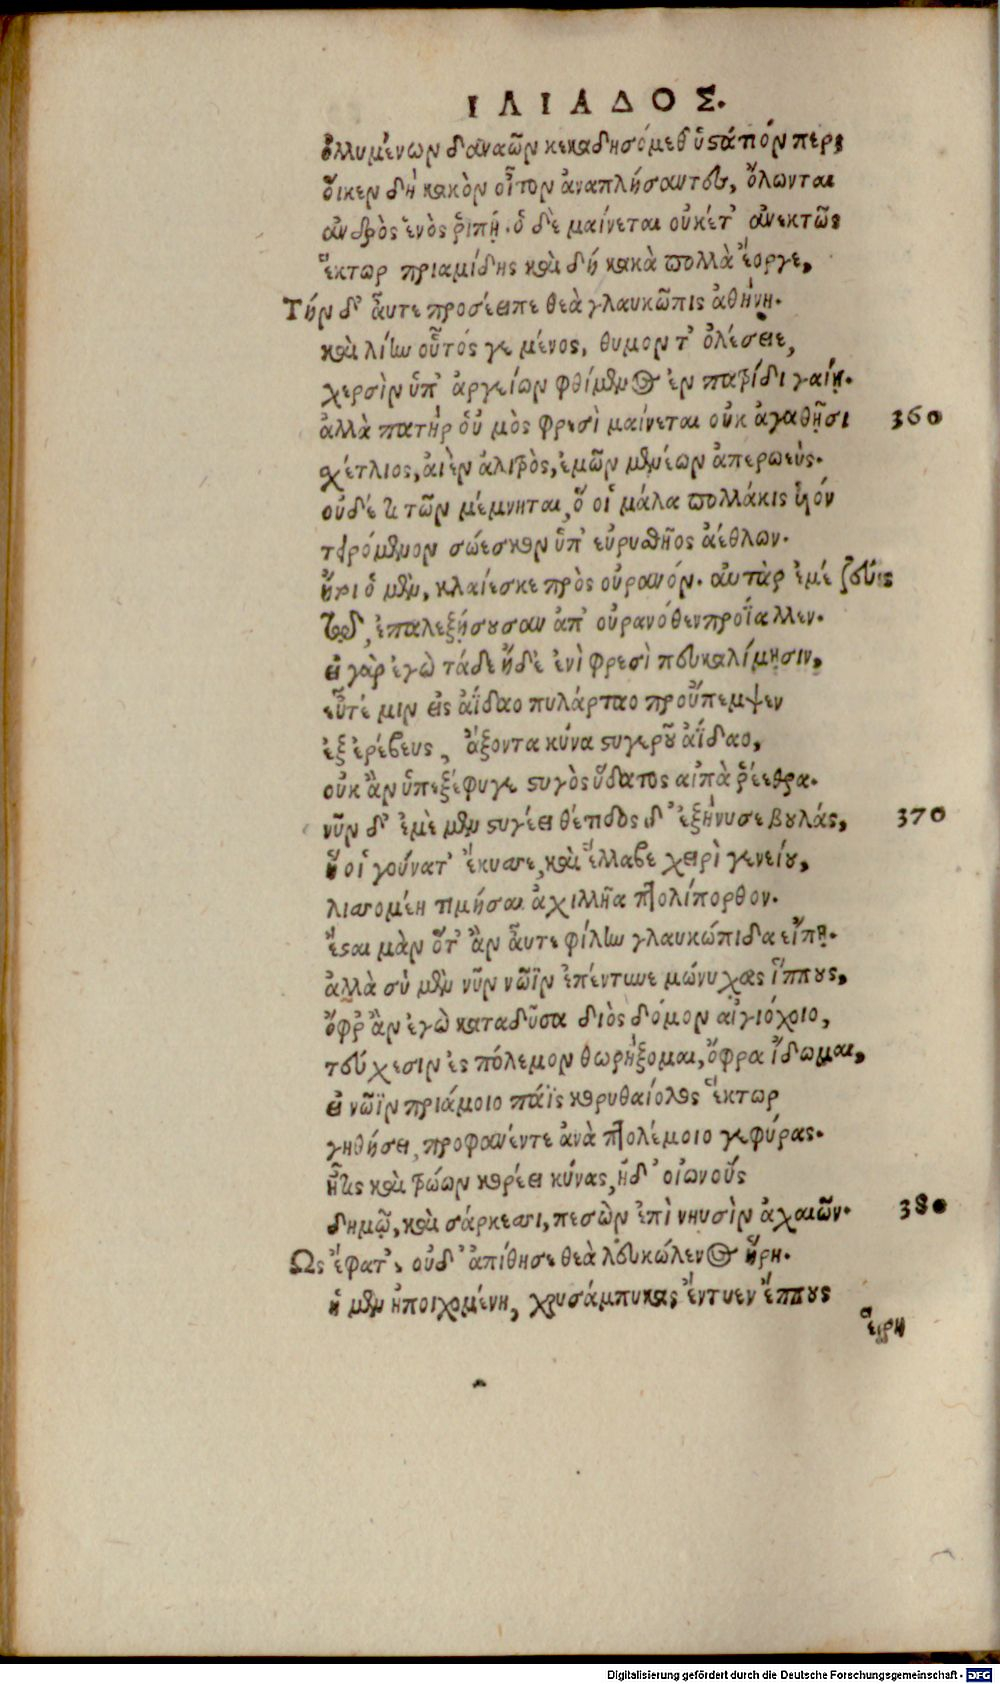 ΙΛΙΑΔΟΣ.
ὀλλυμένων δαναῶν κεκαδησόμεθ ὑστάτιόν περ;
οἵ κεν δὴ κακὸν οἶτον ἀναπλήσαντες, ὄλωνται
ἀνδρὸς ἑνὸς ῥιπῇ. ὁ δὲ μαίνεται οὐκέτ' ἀνεκτῶς
ἕκτωρ πριαμίδης καὶ δή κακὰ πολλὰ ἔοργε,
Τήν δ' αὖτε προσέειπε θεὰ γλαυκῶπις ἀθήνη.
καὶ λίην οὗτός γε μένος, θυμόν τ' ὀλέσειε,
χερσὶν ὑπ' ἀργείων φθίμενος ἐν πατρίδι γαίῃ.
ἀλλὰ πατὴρ οὑμὸς φρεσὶ μαίνεται οὐκ ἀγαθῇσι 360
σχέτλιος, αἰὲν ἀλιτρὸς, ἐμῶν μενέων ἀπερωεύς.
οὐδέ τι τῶν μέμνηται, ὅ οἱ μάλα πολλάκις υἱόν
τειρόμενον σώεσκον ὑπ' εὐρυσθῆος ἀέθλων.
ἤτοι ὁ μὲν, κλαίεσκε πρὸς οὐρανόν. αὐτὰρ ἐμέ ζεὺς
τῷ, ἐπαλεξήσουσαν ἀπ' οὐρανόθεν προΐαλλεν.
εἰ γὰρ ἐγὼ τάδε ᾔδε' ἐνὶ φρεσὶ πευκαλίμῃσιν,
εὖτέ μιν εἰς ἀΐδαο πυλάρταο προὔπεμψεν
ἐξ ἐρέβευς, ἄξοντα κύνα στυγεροῦ ἀΐδαο,
οὐκ ἂν ὑπεξέφυγε στυγὸς ὕδατος αἰπὰ ῥέεθρα.
νῦν δ' ἐμὲ μὲν στυγέει θέτιδος δ' ἐξήνυσε βουλάς, 370
ἥ οἱ γούνατ' ἔκυσσε, καὶ ἔλλαβε χειρὶ γενείου,
λισσομένη τιμῆσαι ἀχιλλῆα πτολίπορθον.
ἔσται μὰν ὅτ' ἂν αὖτε φίλην γλαυκώπιδα εἴπῃ.
ἀλλὰ σὺ μὲν νῦν νῶϊν ἐπέντυνε μώνυχας ἵππους,
ὄφρ' ἂν ἐγὼ καταδῦσα διὸς δόμον αἰγιόχοιο,
τεύχεσιν ἐς πόλεμον θωρήξομαι, ὄφρα ἴδωμαι,
εἰ νῶϊν πριάμοιο πάϊς κορυθαίολος ἕκτωρ
γηθήσει, προφανέντε ἀνὰ πτολέμοιο γεφύρας.
ἦ τις καὶ τρώων κορέει κύνας, ἠδ' οἰωνοὺς
δημῷ, καὶ σάρκεσσι, πεσὼν ἐπὶ νηυσὶν ἀχαιῶν. 380
Ως ἔφατ', οὐδ' ἀπίθησε θεὰ λευκώλενος ἥρη.
ἡ μὲν ἐποιχομένη, χρυσάμπυκας ἔντυεν ἵππους
ἥρη
Digitalisierung gefördert durch die Deutsche Forschungsgemeinschaft - DFG